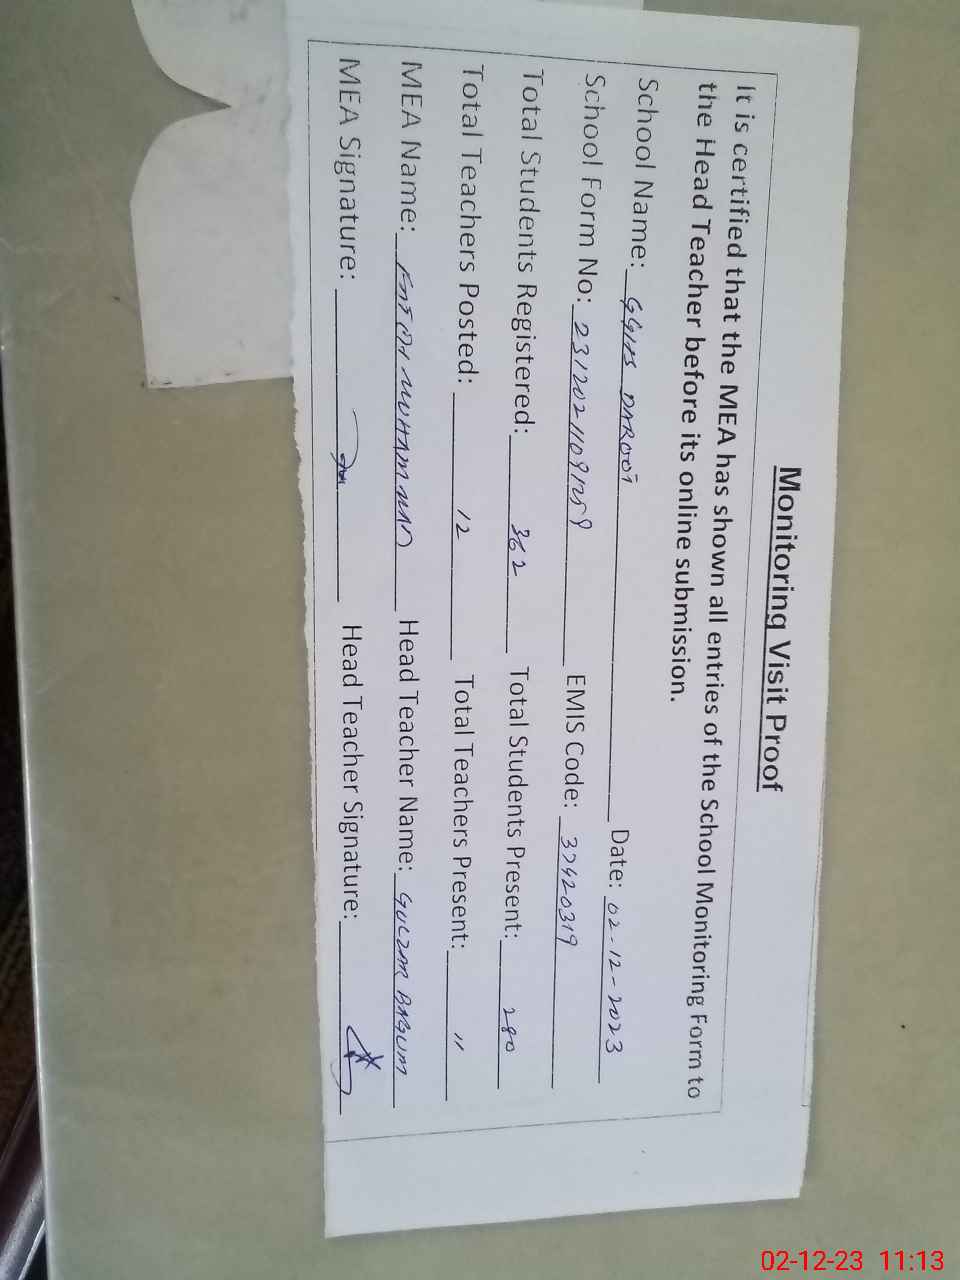 Monitoring Visit Proof
It is certified that the MEA has shown all entries of the School Monitoring Form to
the Head Teacher before its online submission.
School Name: GGHS DAROOI Date: 02-12-2023
School Form No: EMIS Code: 37420319
Total Students Registered: 362 Total Students Present: 280
Total Teachers Posted: 12 Total Teachers Present: 11
MEA Name: MUHAMMAD Head Teacher Name: GULZAR BAGUM
MEA Signature: Head Teacher Signature:
02-12-23 11:13